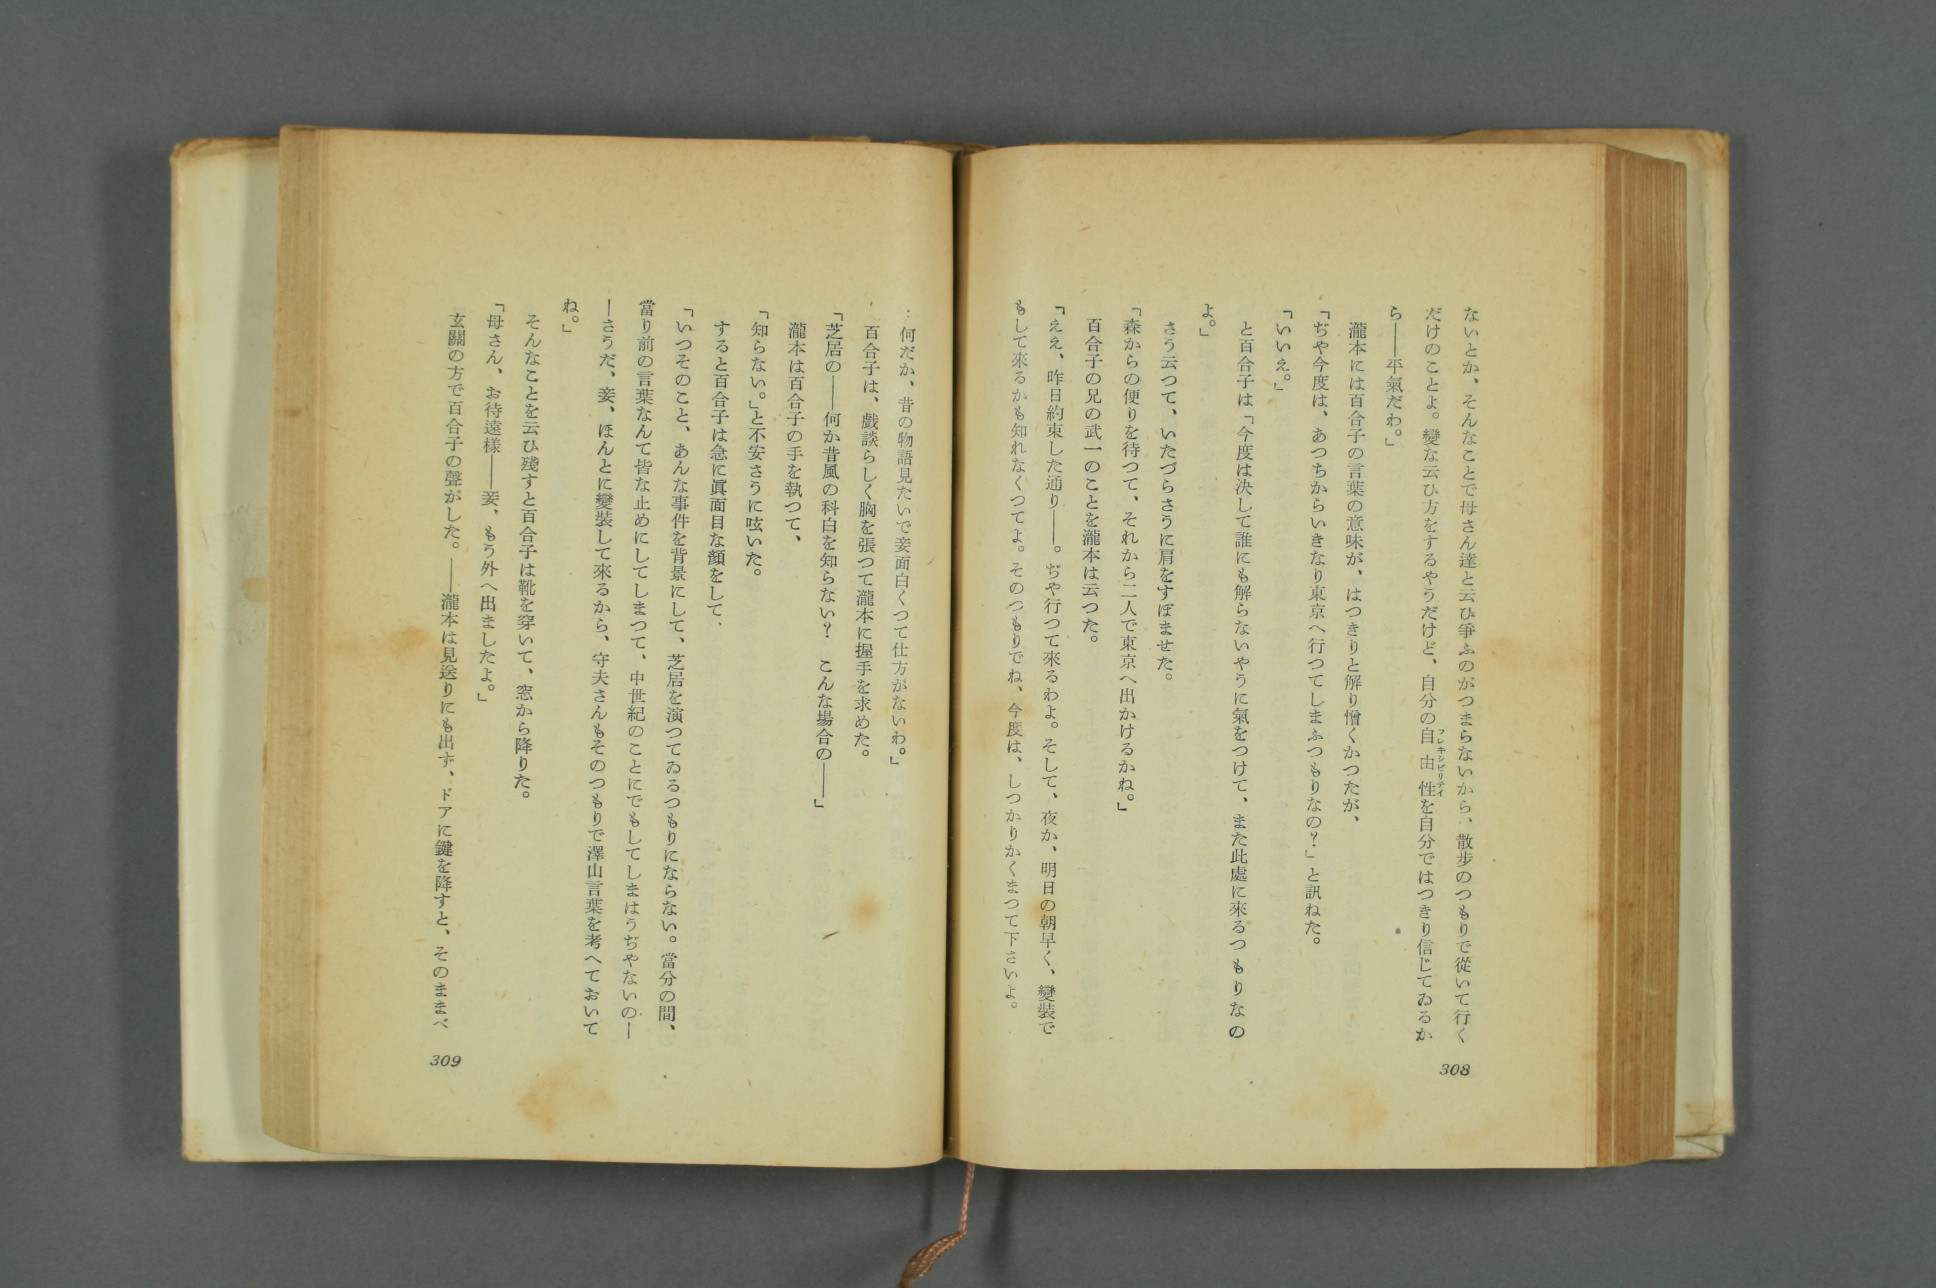 ないとか、そんなことで母さん達と云ひ爭ふのがつまらないから、散歩のつもりで從いて行く
だけのことよ。變な云ひ方をするやうだけど、自分の自由性を自分ではつきり信じてゐるか
フレキシビリテイ
ら――平氣だわ。」
瀧本には百合子の言葉の意味が、はつきりと解り憎くかつたが、
「ぢや今度は、あつちからいきなり東京へ行つてしまふつもりなの？」と訊ねた。
「いいえ。」
と百合子は「今度は決して誰にも解らないやうに氣をつけて、また此處に來るつもりなの
よ。」
さう云つて、いたづらさうに肩をすぼませた。
「森からの便りを待つて、それから二人で東京へ出かけるかね。」
百合子の兄の武一のことを瀧本は云つた。
「ええ、昨日約束した通り――。ぢや行つて來るわよ。そして、夜か、明日の朝早く、變裝で
もして來るかも知れなくつてよ。そのつもりでね、今度は、しつかりかくまつて下さいよ。
308
何だか、昔の物語見たいで妾面白くつて仕方がないわ。」
百合子は、戲談らしく胸を張つて瀧本に握手を求めた。
「芝居の――何か昔風の科白を知らない？　こんな場合の――」
瀧本は百合子の手を執つて、
「知らない。」と不安さうに呟いた。
すると百合子は急に眞面目な顏をして、
「いつそのこと、あんな事件を背景にして、芝居を演つてゐるつもりにならない。當分の間、
當り前の言葉なんて皆な止めにしてしまつて、中世紀のことにでもしてしまはうぢやないの―
―さうだ、妾、ほんとに變裝して來るから、守夫さんもそのつもりで澤山言葉を考へておいて
ね。」
そんなことを云ひ殘すと百合子は靴を穿いて、窓から降りた。
「母さん、お待遠樣――妾、もう外へ出ましたよ。」
玄關の方で百合子の聲がした。――瀧本は見送りにも出ず、ドアに鍵を降すと、そのままベ
309